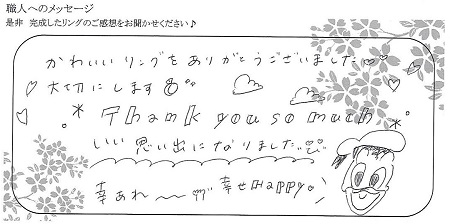 職人へのメッセージ
是非 完成したリングのご感想をお聞かせください♪
かわいいリングをありがとうございました
大切にします
Thank you so much
いい思い出になりました
幸あれ〜〜 幸せHappy